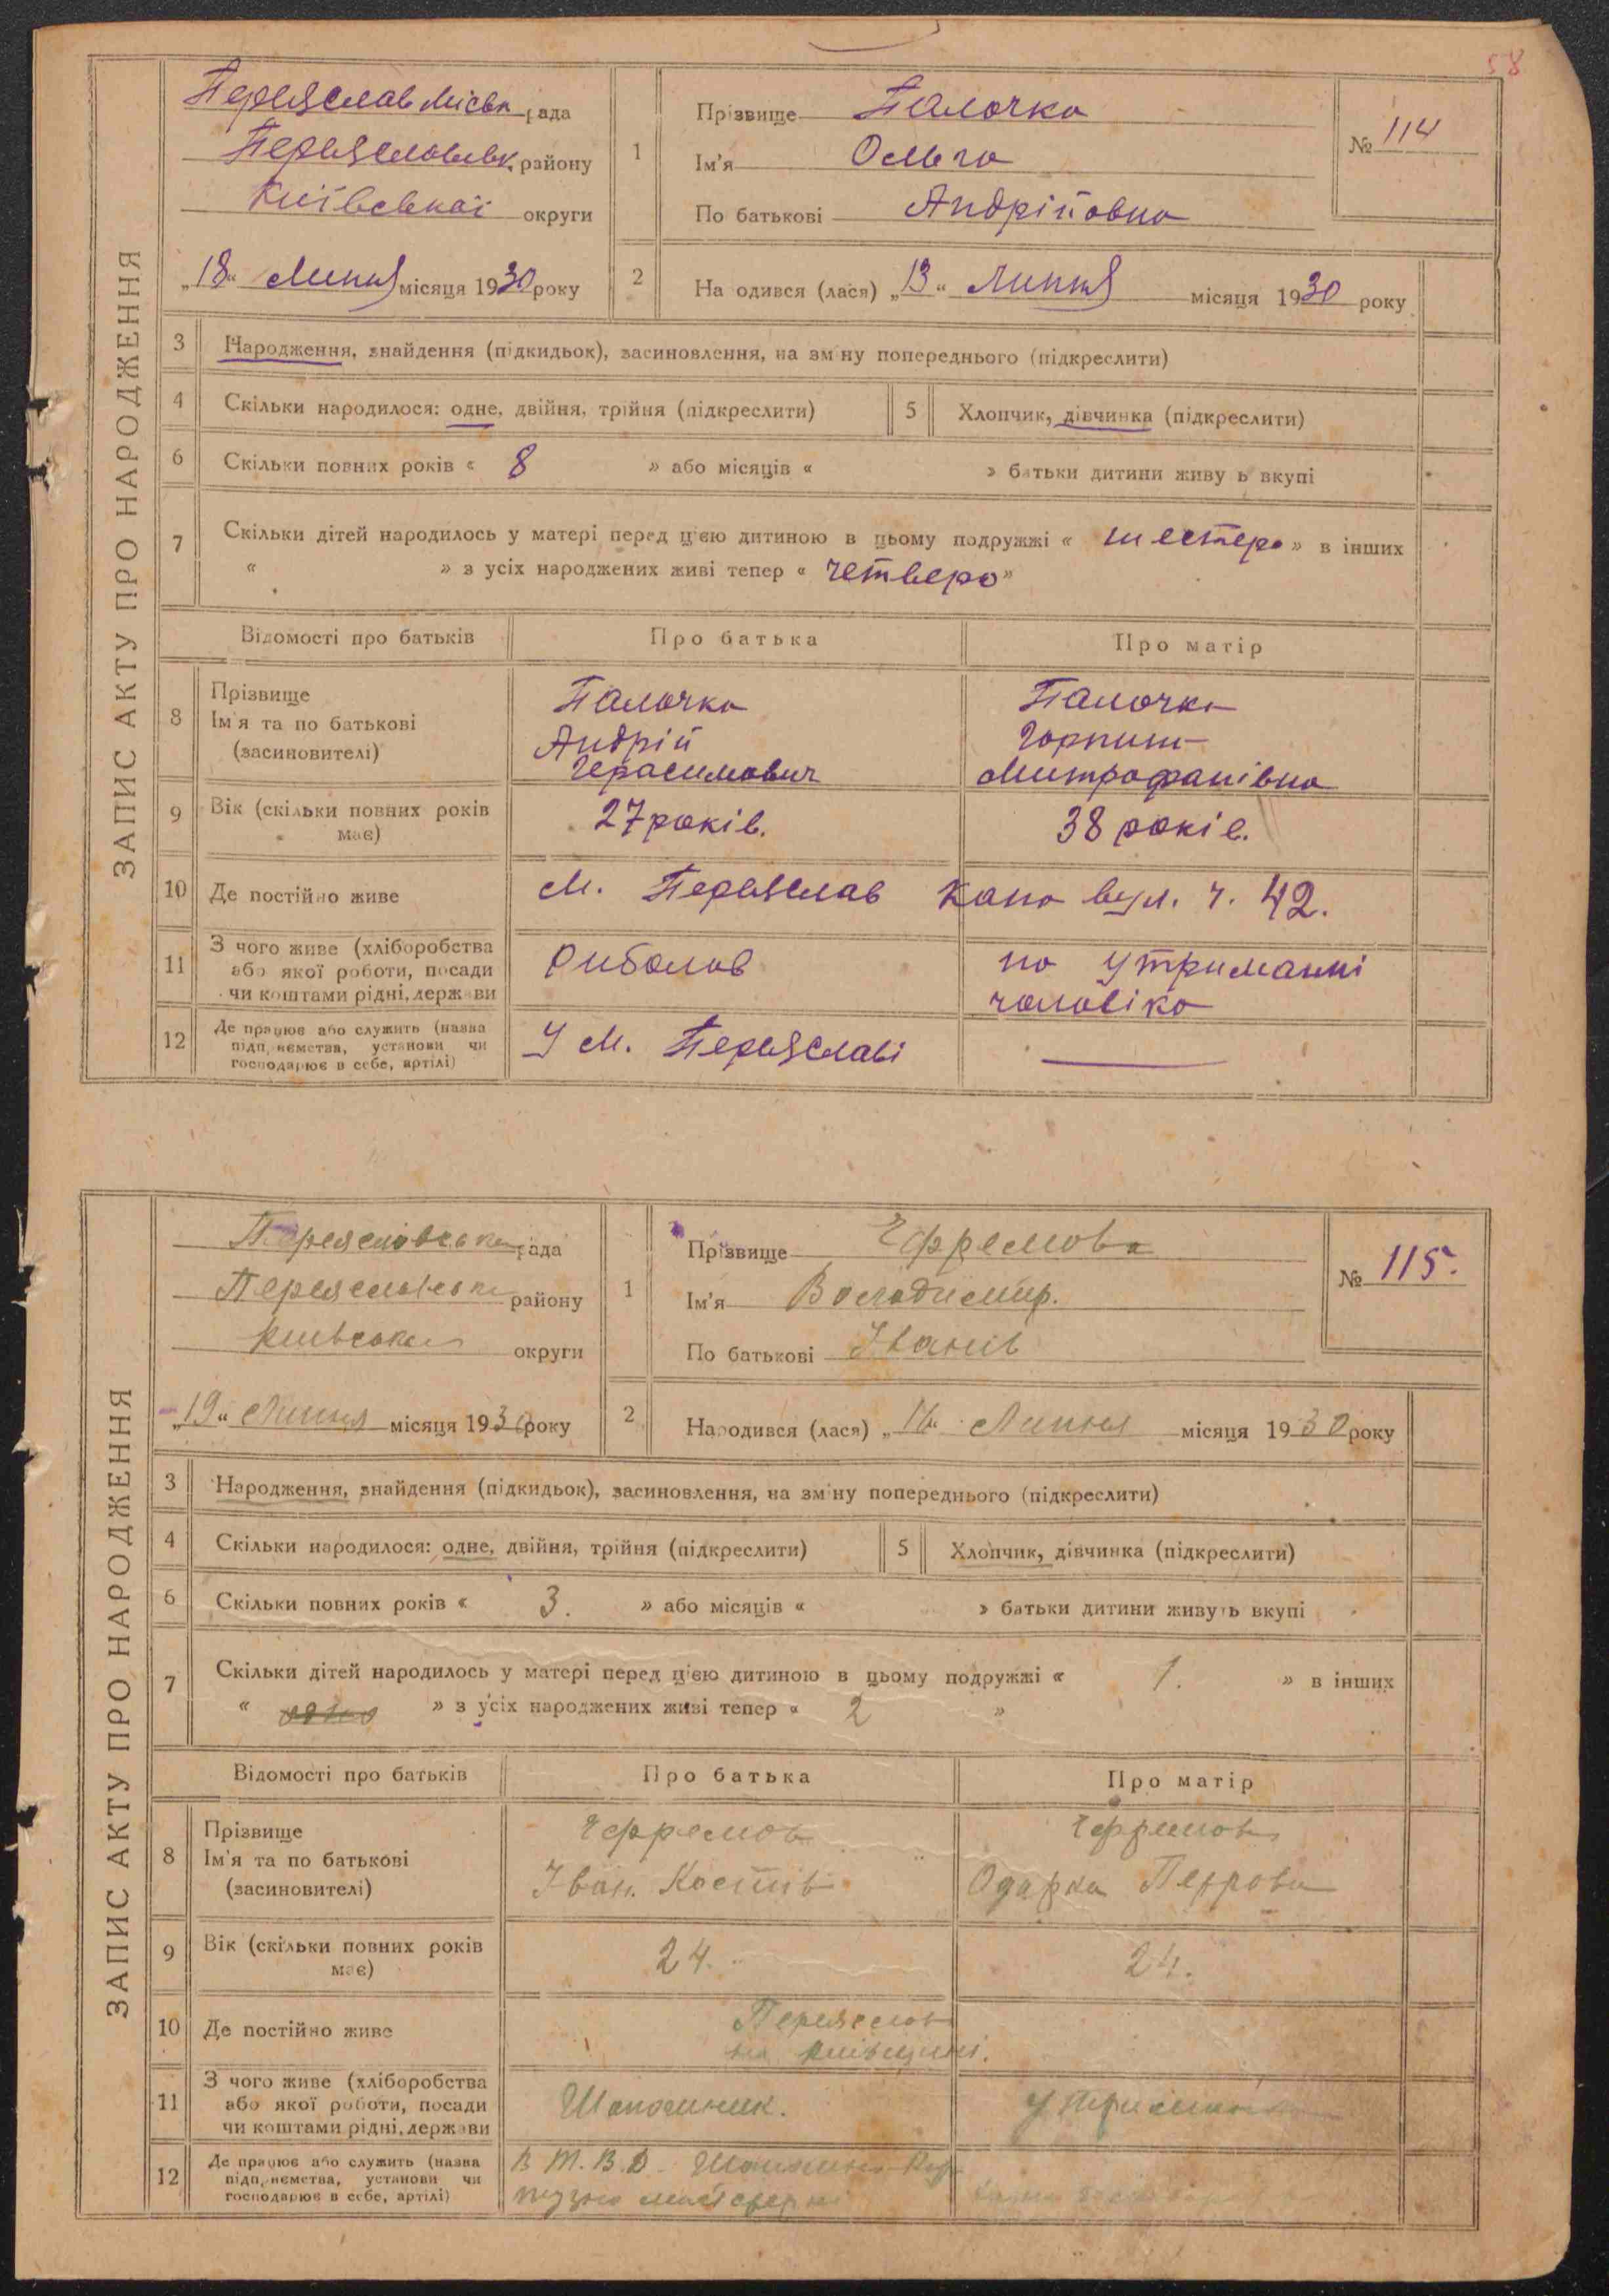 58
ЗАПИС АКТУ ПРО НАРОДЖЕННЯ
Переяслав Міськ рада
Переяславськ. району
Київської округи
„18“ Липня місяця 1930 року
1
Прізвище Палочка
Ім'я Ольга
По батькові Андріївна
№ 114
2
На одився (лася) „13“ Липня місяця 1930 року
3 Народження, знайдення (підкидьок), засиновлення, на зміну попереднього (підкреслити)
4 Скільки народилося: одне, двійня, трійня (підкреслити) 5 Хлопчик, дівчинка (підкреслити)
6 Скільки повних років « 8 » або місяців « » батьки дитини живу ь вкупі
7 Скільки дітей народилось у матері перед цією дитиною в цьому подружжі « шестеро » в інших
« » з усіх народжених живі тепер « четверо »
Відомості про батьків Про батька Про матір
8 Прізвище
Ім'я та по батькові
(засиновителі)
Палочка
Андрій
Герасимович
Палочка
Горпина
Митрофанівна
9 Вік (скільки повних років
має)
27 років. 38 років.
10 Де постійно живе м. Переяслав Кано вул. ч. 42.
11 З чого живе (хліборобства
або якої роботи, посади
чи коштами рідні, держави
Риболов
на утриманні
чоловіка
12 Де працює або служить (назва
підприємства, установи чи
господарює в себе, артілі)
У м. Переяславі
ЗАПИС АКТУ ПРО НАРОДЖЕННЯ
Переяславська рада
Переяславська району
Київська округи
„19“ Липня місяця 1930 року
1
Прізвище Єфремов
Ім'я Володимир.
По батькові Іванів
№ 115.
2
Народився (лася) „16“ Липня місяця 1930 року
3 Народження, знайдення (підкидьок), засиновлення, на зміну попереднього (підкреслити)
4 Скільки народилося: одне, двійня, трійня (підкреслити) 5 Хлопчик, дівчинка (підкреслити)
6 Скільки повних років « 3. » або місяців « » батьки дитини живуть вкупі
7 Скільки дітей народилось у матері перед цією дитиною в цьому подружжі « 1. » в інших
« » з усіх народжених живі тепер « 2 »
Відомості про батьків Про батька Про матір
8 Прізвище
Ім'я та по батькові
(засиновителі)
Єфремов
Іван Костів
Єфремова
Одарка Петрова
9 Вік (скільки повних років
має)
24. 24.
10 Де постійно живе
Переяслов
на Київщині.
11 З чого живе (хліборобства
або якої роботи, посади
чи коштами рідні, держави
Шапошник.
12 Де працює або служить (назва
підприємства, установи чи
господарює в себе, артілі)
В Т.В.Д.